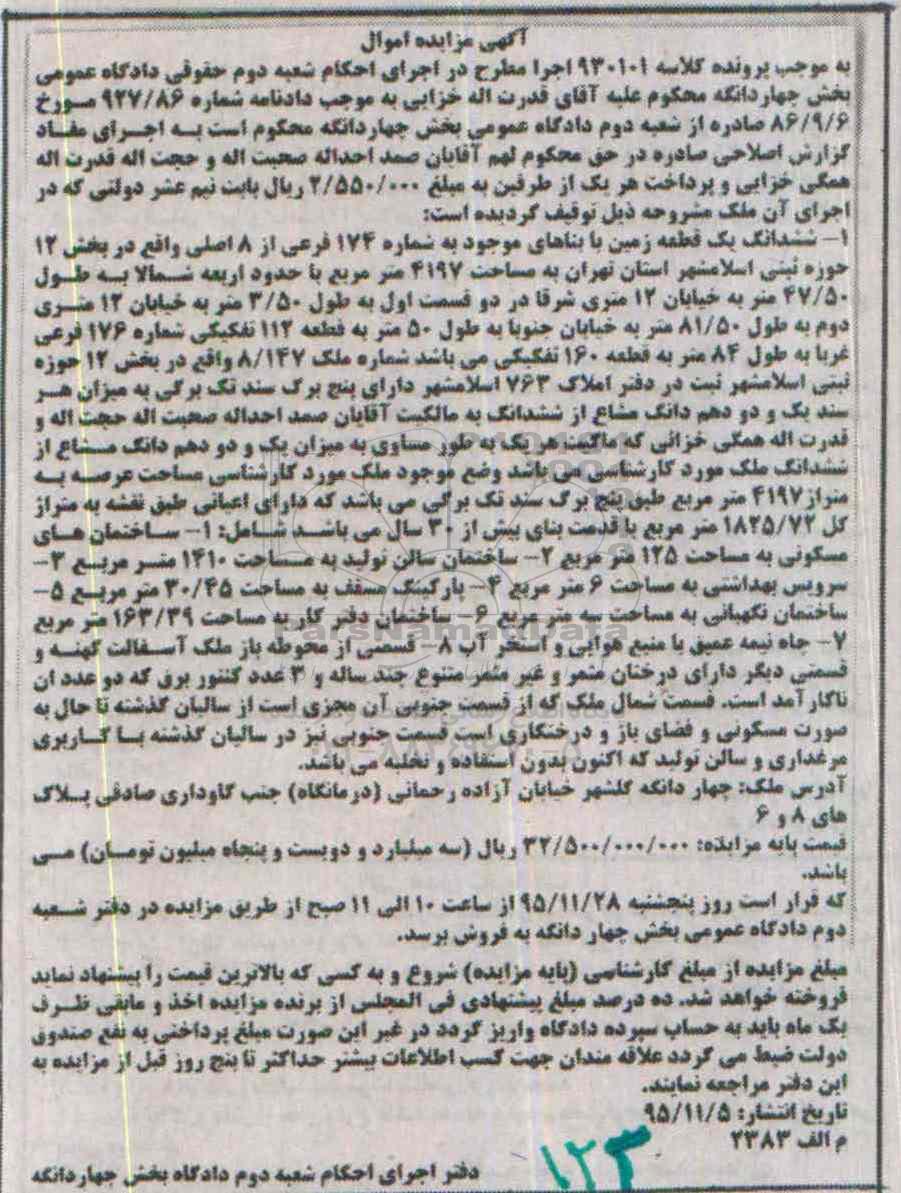 آگهی مزایده اموال
به موجب پرونده کلاسه ۹۳۰۱۰۱ اجرا مطرح در اجرای احکام شعبه دوم حقوقی دادگاه عمومی
بخش چهاردانگه محکوم علیه آقای قدرت اله خزایی به موجب دادنامه شماره ۹۲۷/۸۶ مـورخ
۸۶/۹/۶ صادره از شعبه دوم دادگاه عمومی بخش چهاردانگه محکوم است بـه اجـرای مفـاد
گزارش اصلاحی صادره در حق محکوم لهم آقایان صمد احداله صحبت اله و حجت اله قدرت اله
همگی خزایی و پرداخت هر یک از طرفین به مبلغ ۲/۵۵۰/۰۰۰ ریال بابت نیم عشر دولتی که در
اجرای آن ملک مشروحه ذیل توقیف گردیده است:
۱- ششدانگ یک قطعه زمین با بناهای موجود به شماره ۱۷۴ فرعی از ۸ اصلی واقع در بخش ۱۲
حوزه ثبتی اسلامشهر استان تهران به مساحت ۴۱۹۷ متر مربع با حدود اربعه شـمالا بـه طـول
۴۷/۵۰ متر به خیابان ۱۲ متری شرقا در دو قسمت اول به طول ۳/۵۰ متر به خیابان ۱۲ متـری
دوم به طول ۸۱/۵۰ متر به خیابان جنوبا به طول ۵۰ متر به قطعه ۱۱۲ تفکیکی شماره ۱۷۶ فرعی
غربا به طول ۸۴ متر به قطعه ۱۶۰ تفکیکی می باشد شماره ملک ۸/۱۴۷ واقع در بخش ۱۲ حوزه
ثبتی اسلامشهر ثبت در دفتر املاک ۷۶۳ اسلامشهر دارای پنج برگ سند تک برگی به میزان هـر
سند یک و دو دهم دانگ مشاع از ششدانگ به مالکیت آقایان صمد احداله صحبت اله حجت اله و
قدرت اله همگی خزائی که مالکیت هر یک به طور مساوی به میزان یک و دو دهم دانگ مـشاع از
ششدانگ ملک مورد کارشناسی می باشد وضع موجود ملک مورد کارشناسی مساحت عرصـه بـه
متراژ ۴۱۹۷ متر مربع طبق پنج برگ سند تک برگی می باشد که دارای اعیانی طبق نقشه به متراژ
کل ۱۸۲۵/۷۲ متر مربع با قدمت بنای بیش از ۳۰ سال می باشـد شـامل: ۱- سـاختمان هـای
مسکونی به مساحت ۱۲۵ متر مربع ۲- ساختمان سالن تولید به مساحت ۱۴۱۰ متـر مربـع ۳-
سرویس بهداشتی به مساحت ۶ متر مربع ۴- پارکینگ مسقف به مساحت ۳۰/۴۵ متر مربـع ۵-
ساختمان نگهبانی به مساحت سه متر مربع ۶- ساختمان دفتر کار به مساحت ۱۶۳/۳۹ متر مربع
۷- چاه نیمه عمیق با منبع هوایی و استخر آب ۸- قسمتی از محوطه باز ملک آسـفالت کهنـه و
قسمتی دیگر دارای درختان مثمر و غیر مثمر متنوع چند ساله و ۳ عدد کنتور برق که دو عدد ان
ناکار آمد است. قسمت شمال ملک که از قسمت جنوبی آن مجزی است از سالیان گذشته تا حال به
صورت مسکونی و فضای باز و درختکاری است قسمت جنوبی نیز در سالیان گذشته بـا کـاربری
مرغداری و سالن تولید که اکنون بدون استفاده و تخلیه می باشد.
آدرس ملک: چهار دانگه گلشهر خیابان آزاده رحمانی (درمانگاه) جنب گاوداری صادقی پـلاک
های ۸ و ۶
قیمت پایه مزایده: ۳۲/۵۰۰/۰۰۰/۰۰۰ ریال (سه میلیارد و دویست و پنجاه میلیون تومـان) مـی
باشد.
که قرار است روز پنجشنبه ۹۵/۱۱/۲۸ از ساعت ۱۰ الی ۱۱ صبح از طریق مزایده در دفتر شـعبه
دوم دادگاه عمومی بخش چهار دانگه به فروش برسد.
مبلغ مزایده از مبلغ کارشناسی (پایه مزایده) شروع و به کسی که بالاترین قیمت را پیشنهاد نماید
فروخته خواهد شد. ده درصد مبلغ پیشنهادی فی المجلس از برنده مزایده اخذ و مابقی ظـرف
یک ماه باید به حساب سپرده دادگاه واریز گردد در غیر این صورت مبلغ پرداختی به نفع صندوق
دولت ضبط می گردد علاقه مندان جهت کسب اطلاعات بیشتر حداکثر تا پنج روز قبل از مزایده به
این دفتر مراجعه نمایند.
تاریخ انتشار: ۹۵/۱۱/۵
م الف ۲۳۸۳
دفتر اجرای احکام شعبه دوم دادگاه بخش چهاردانگه
۱۲۳
ParsNamadData